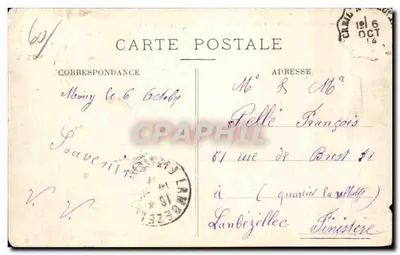 60
CARTE POSTALE
CORRESPONDANCE
ADRESSE
Mouy le 6 Octobre
Souvenir
V. V.
Mr & Me
Pellé François
51 rue de Brest 51
à (quartier
Lanbézellec
Finistère
6
OCT
14
LAMBEZELLEC
CPARAMA